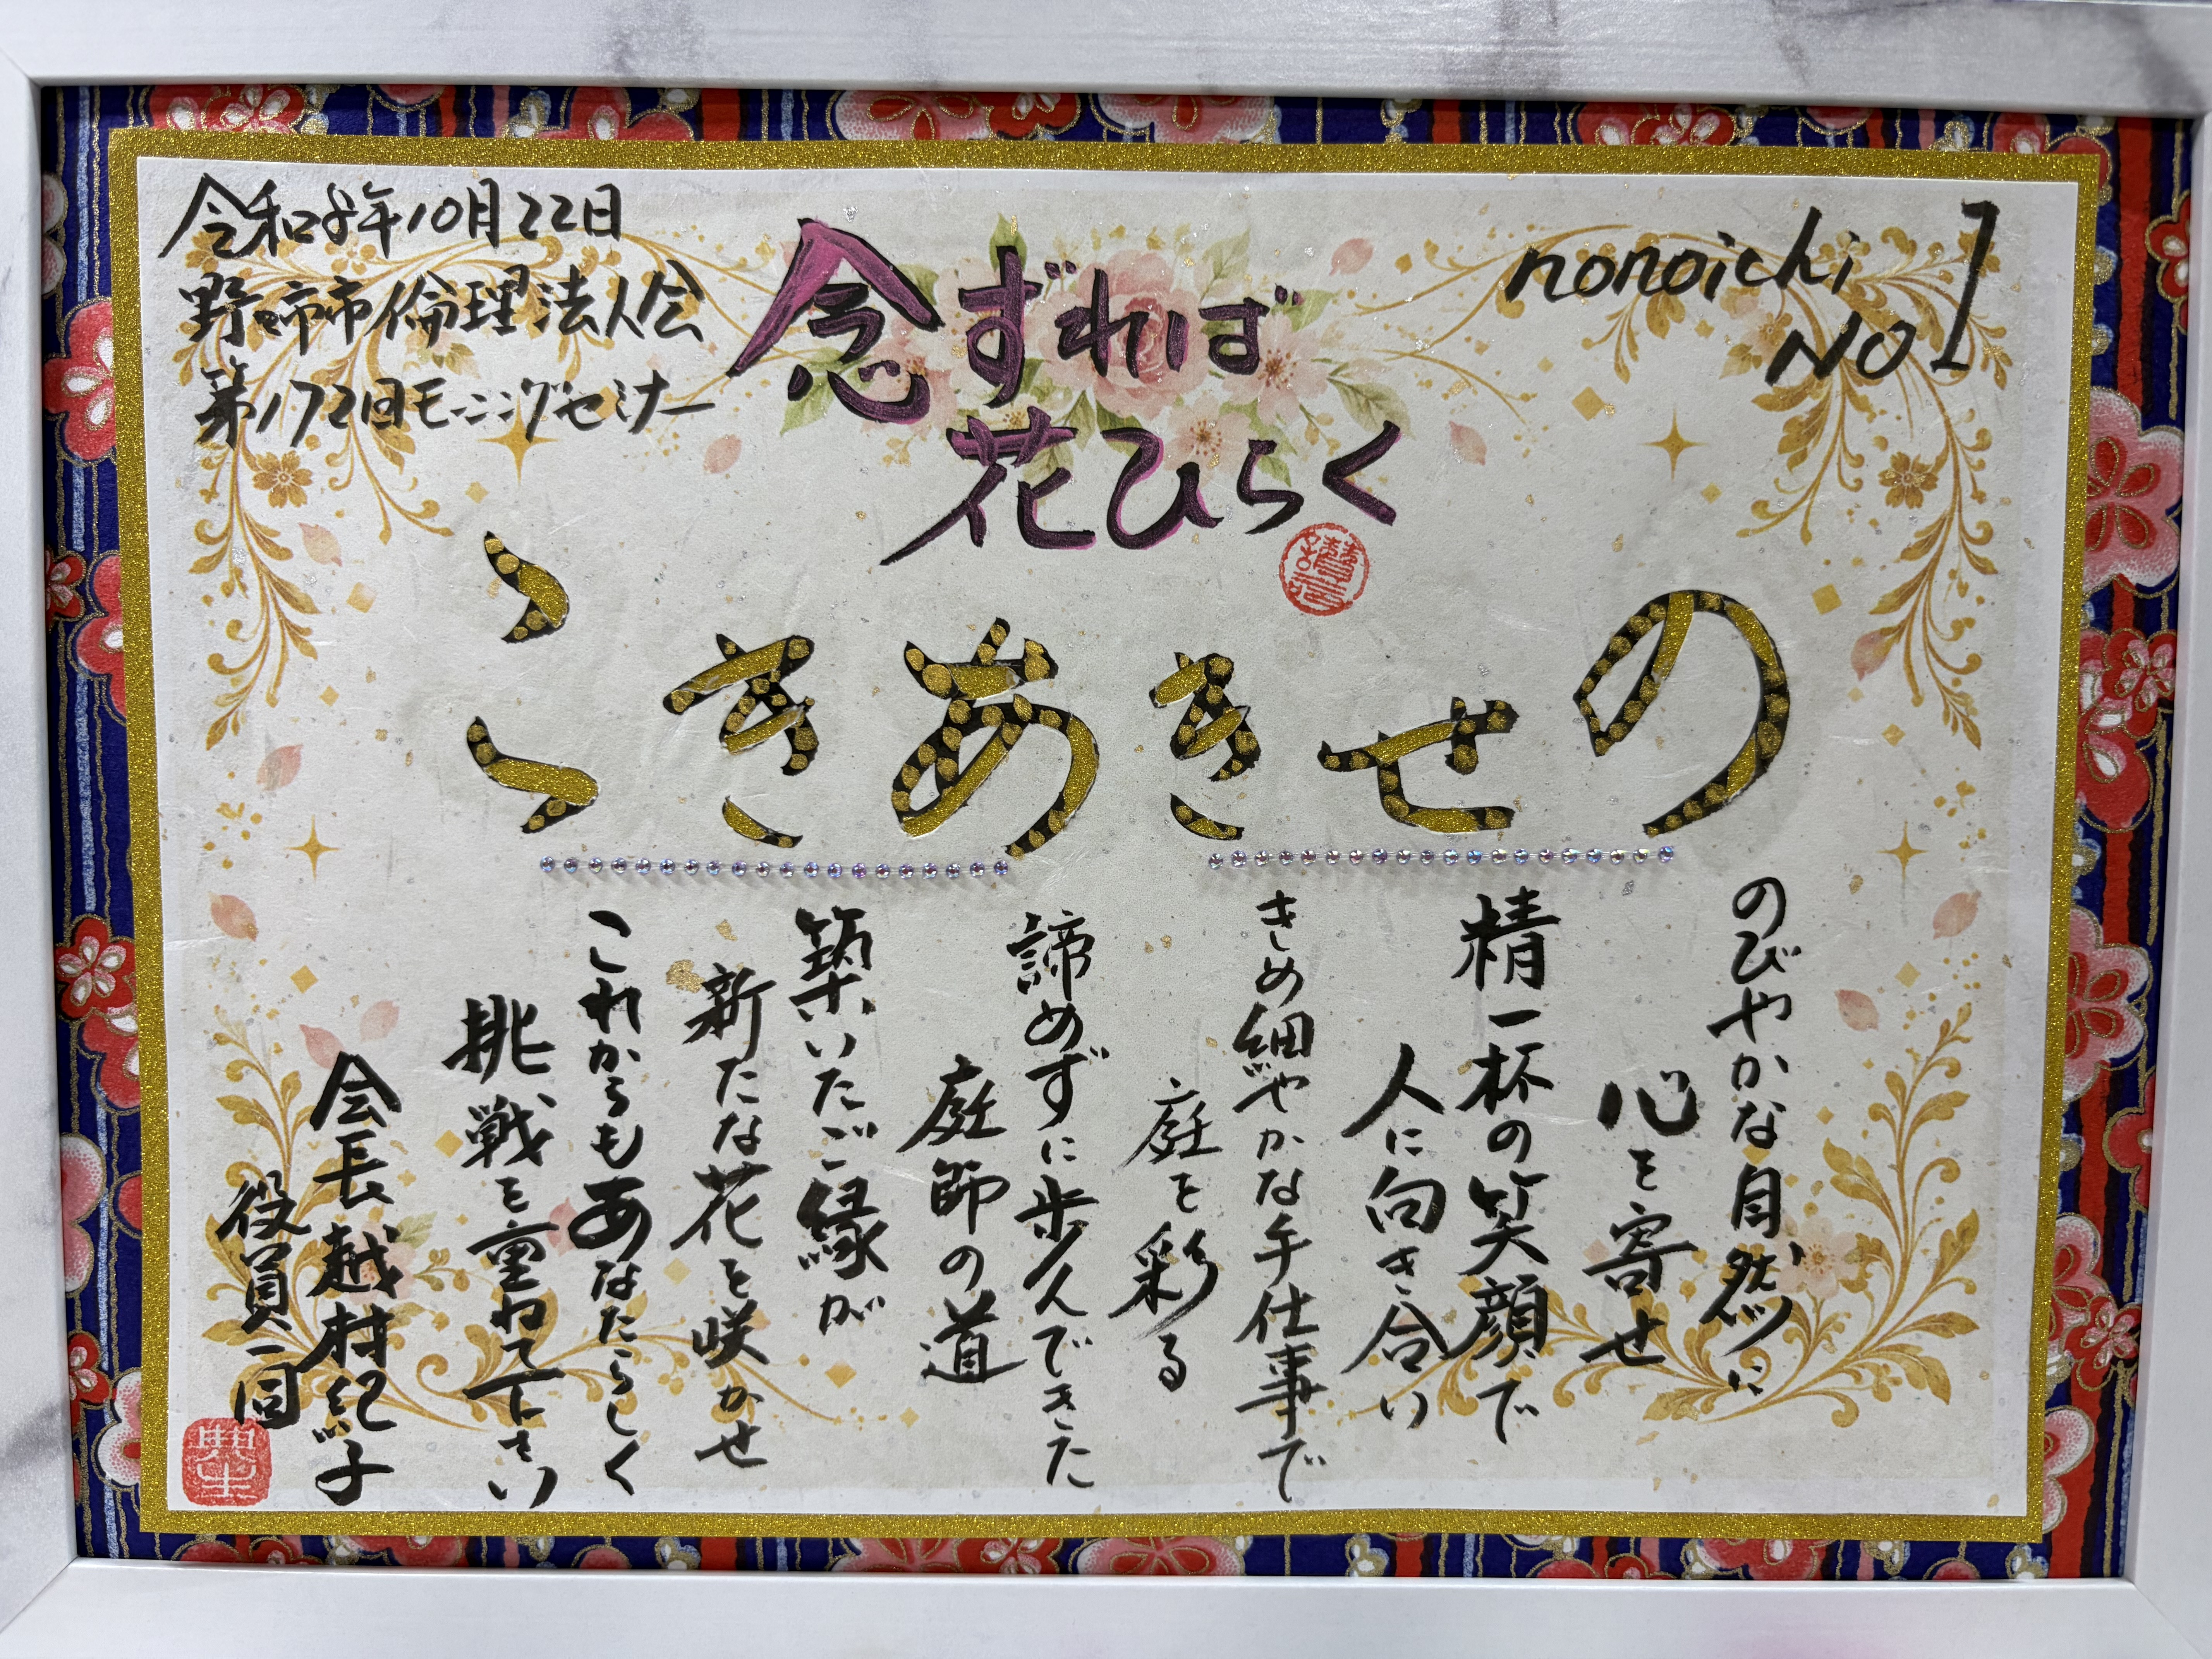 令和8年10月22日
野々市市倫理法人会
第172回モーニングセミナー
念ずれば
花ひらく
nonoichi
NO1
のせきあきこ
のびやかな自然に
心を寄せ
精一杯の笑顔で
人に向き合い
きめ細やかな手仕事で
庭を彩る
諦めずに歩んできた
庭師の道
築いたご縁が
新たな花を咲かせ
これからもあなたらしく
挑戦を重ねて下さい
会長 越村紀子
役員一同